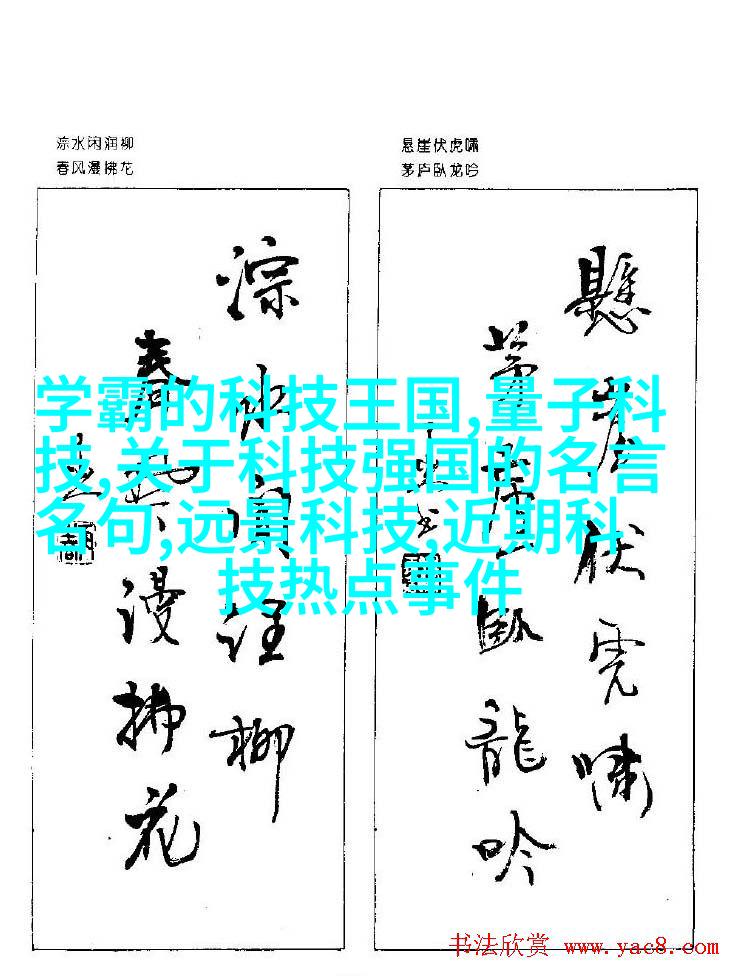 淙水闲润柳
春风漫拂花
悬崖伏虎啸
茅庐卧龙吟
淙水闲润柳
春风漫拂花
懸崖伏虎嘯
茅庐卧龍吟
学霸的科技王国,量子科
技,关于科技强国的名言
名句,远景科技,近期科
技热点事件
书法欣赏 www.yac8.com